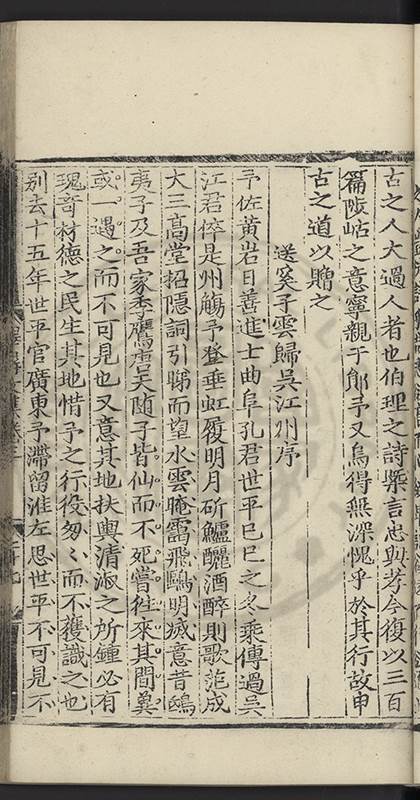 古之人大過人者也伯理之詩槩言忠與孝今復以三百
篇陟岵之意寧親于郎予又烏得無深愧乎於其行故申
古之道以贈之
送奚子雲歸吳江州序
予佐黃岩日善進士曲阜孔君世平巳巳之冬乘傳過吳
江君倅是州觴予登垂虹履明月斫鱸釃酒醉則歌范成
大三高堂招隱詞引睇而望水雲晻靄飛鷗明滅意昔鴟
夷子及吾家季鷹唐天随子皆仙而不死嘗往來其間冀
或一遇之而不可見也又意其地扶輿清淑之所鍾必有
瑰竒材德之民生其地惜予之行役匆匆而不獲識之也
别去十五年世平官廣東予滯留淮左思世平不可見不